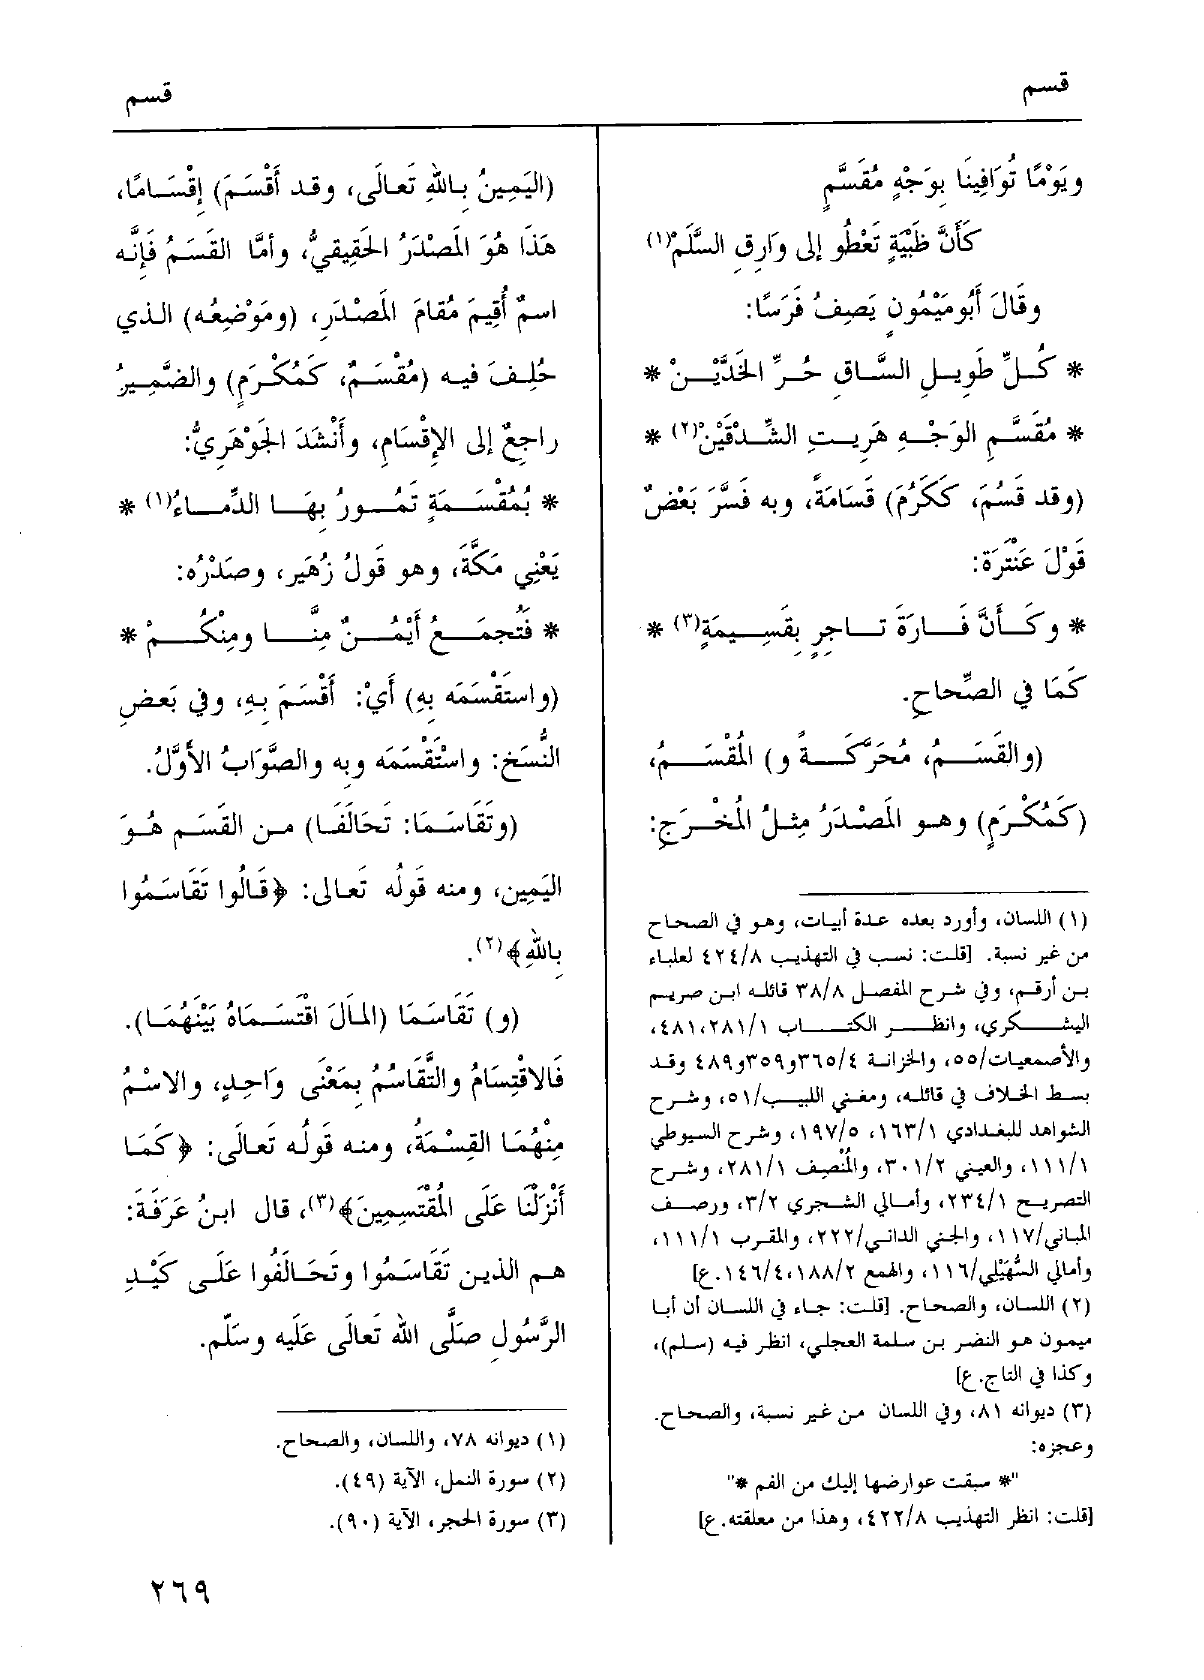 قسم
قسم
ويَوْمًا تُوَافِينَا بِوَجْهٍ مُقَسَّمٍ
كَأَنَّ ظَبْيَةٍ تَعْطُو إلى وَارِقِ السَّلَمْ(١)
وقَالَ أَبُو مَيْمُونٍ يَصِفُ فَرَسًا:
* كُلِّ طَوِيلِ السَّاقِ حُرِّ الخَدَّيْنْ *
* مُقَسَّمِ الوَجْهِ هَرِيتِ الشِّدْقَيْنْ(٢) *
(وقد قَسُمَ، كَكَرُمَ) قَسَامَةً، وبه فَسَّرَ بَعْضٌ
قَوْلَ عَنْتَرَةَ:
* وكَأَنَّ فَارَةَ تَاجِرٍ بِقَسِيمَةٍ(٣) *
كَمَا في الصِّحاحِ.
(والقَسَمُ، مُحَرَّكَةً و) المُقْسَمُ،
(كَمُكْرَمٍ) وهو المَصْدَرُ مِثلُ المُخْرَجِ:
(١) اللسان، وأورد بعده عدة أبيات، وهو في الصحاح
من غير نسبة. [قلت: نسب في التهذيب ٤٢٤/٨ لعلباء
بن أرقم، وفي شرح المفصل ٣٨/٨ قائله ابن صريم
اليشكري، وانظر الكتاب ٤٨١،٢٨١/١،
والأصمعيات/٥٥، والخزانة ٣٦٥/٤و٣٥٩و٤٨٩ وقد
بسط الخلاف في قائله، ومغني اللبيب/٥١، وشرح
الشواهد للبغدادي ١٦٣/١، ١٩٧/٥، وشرح السيوطي
١١١/١، والعيني ٣٠١/٢، والمُنْصِف ٢٨١/١، وشرح
التصريح ٢٣٤/١، وأمالي الشجري ٣/٢، ورصف
المباني/١١٧، والجنى الداني/٢٢٢، والمقرب ١١١/١،
وأمالي السُّهَيْلي/١١٦، والهمع ١٤٦/٤،١٨٨/٢.ع]
(٢) اللسان، والصحاح. [قلت: جاء في اللسان أن أبا
ميمون هو النضر بن سلمة العجلي، انظر فيه (سلم)،
وكذا في التاج.ع]
(٣) ديوانه ٨١، وفي اللسان من غير نسبة، والصحاح.
وعجزه:
"* سبقت عوارضها إليك من الفم *"
[قلت: انظر التهذيب ٤٢٢/٨، وهذا من معلقته.ع]
(اليَمِينُ بِاللهِ تَعالَى، وقد أَقْسَمَ) إِقْسَامًا،
هَذَا هُوَ المَصْدَرُ الحَقِيقيُّ، وأمَّا القَسَمُ فَإنَّه
اسمٌ أُقِيمَ مُقامَ المَصْدَرِ، (ومَوْضِعُه) الذي
حُلِفَ فيه (مُقْسَمٌ، كَمُكْرَمٍ) والضَّمِيرُ
راجِعٌ إلى الإقْسَامِ، وأَنْشَدَ الجَوْهَرِيُّ:
* بمُقْسَمَةٍ تَمُورُ بِهَا الدِّمَاءُ(١) *
يَعْنِي مَكَّةَ، وهو قَولُ زُهَيرٍ، وصَدْرُه:
* فَتُجمَعُ أَيْمُنٌ مِنَّا ومِنكُمْ *
(واستَقْسَمَه بِهِ) أَيْ: أَقْسَمَ بِهِ، وفي بَعضِ
النُّسَخِ: واسْتَقْسَمَه وبِه والصَّوَابُ الأَوَّلُ.
(وتَقَاسَمَا: تَحَالَفَا) من القَسَمِ هُوَ
اليَمِين، ومنه قَولُه تَعالى: ﴿قَالُوا تَقَاسَمُوا
بِاللهِ﴾(٢).
(و) تَقَاسَمَا (المَالَ اقْتَسَمَاهُ بَيْنَهُمَا).
فَالاقْتِسَامُ والتَّقَاسُمُ بِمَعْنًى وَاحِدٍ، والاسْمُ
مِنْهُمَا القِسْمَةُ، ومنه قَولُه تَعالَى: ﴿كَمَا
أَنْزَلْنَا عَلَى المُقْتَسِمِينَ﴾(٣)، قال ابنُ عَرَفَةَ:
هم الذين تَقَاسَمُوا وتَحَالَفُوا عَلَى كَيْدِ
الرَّسُولِ صَلَّى اللهُ تَعالَى عَلَيه وسَلَّم.
(١) ديوانه ٧٨، واللسان، والصحاح.
(٢) سورة النمل، الآية (٤٩).
(٣) سورة الحجر، الآية (٩٠).
٢٦٩